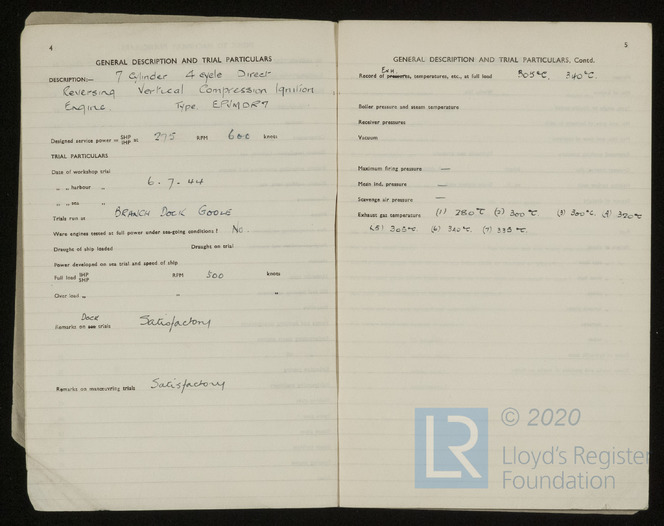 4
GENERAL DESCRIPTION AND TRIAL PARTICULARS
DESCRIPTION:— 7 Cylinder 4 cycle Direct
Reversing Vertical Compression Ignition
Engine. Type. 
Designed service power = SHP IHP at 275 RPM 600 knots
TRIAL PARTICULARS
Date of workshop trial
„ „ harbour „ 6.7.44
„ „ sea „
Trials run at BRANCH DOCK GOOLE
Were engines tested at full power under sea-going conditions? No.
Draught of ship loaded Draught on trial
Power developed on sea trial and speed of ship
Full load IHP SHP RPM 500 knots
Over load „ „ „
Dock
Remarks on sea trials Satisfactory
Remarks on manœuvring trials Satisfactory
5
GENERAL DESCRIPTION AND TRIAL PARTICULARS, Contd.
Exh.
Record of powers, temperatures, etc., at full load 305°C. 340°C.
Boiler pressure and steam temperature
Receiver pressures
Vacuum
Maximum firing pressure —
Mean ind. pressure —
Scavenge air pressure —
Exhaust gas temperature (1) 280°C (2) 300°C. (3) 300°C. (4) 320°C
(5) 305°C (6) 320°C. (7) 335°C.
LR © 2020
Lloyd's Register
Foundation